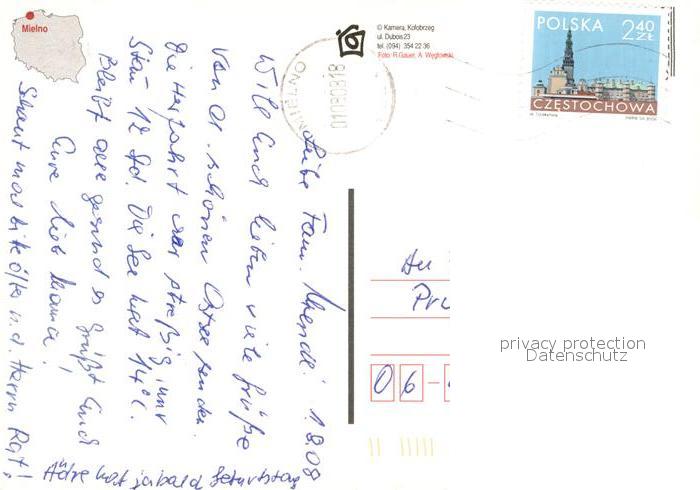 Mielno
© Kamera, Kołobrzeg
ul. Dubois 23
tel. (094) 354 22 36
Foto: R.Gauer, A. Węgłowski
MIELNO
010808-18
POLSKA
2 40
ZŁ
CZĘSTOCHOWA
Liebe Fam. 1.8.08
Will Euch lieben viele Grüße
von der schönen Ostsee senden.
Die Herfahrt war streßig, wir
12 Std. Die See hat 14°C.
Bleibt alle gesund es grüßt Euch
Eure lieb Mama!
Schaut mal bitte öfter n. d. Herrn Rat!
hat ja bald Geburtstag
An
Pr
06-
privacy protection
Datenschutz